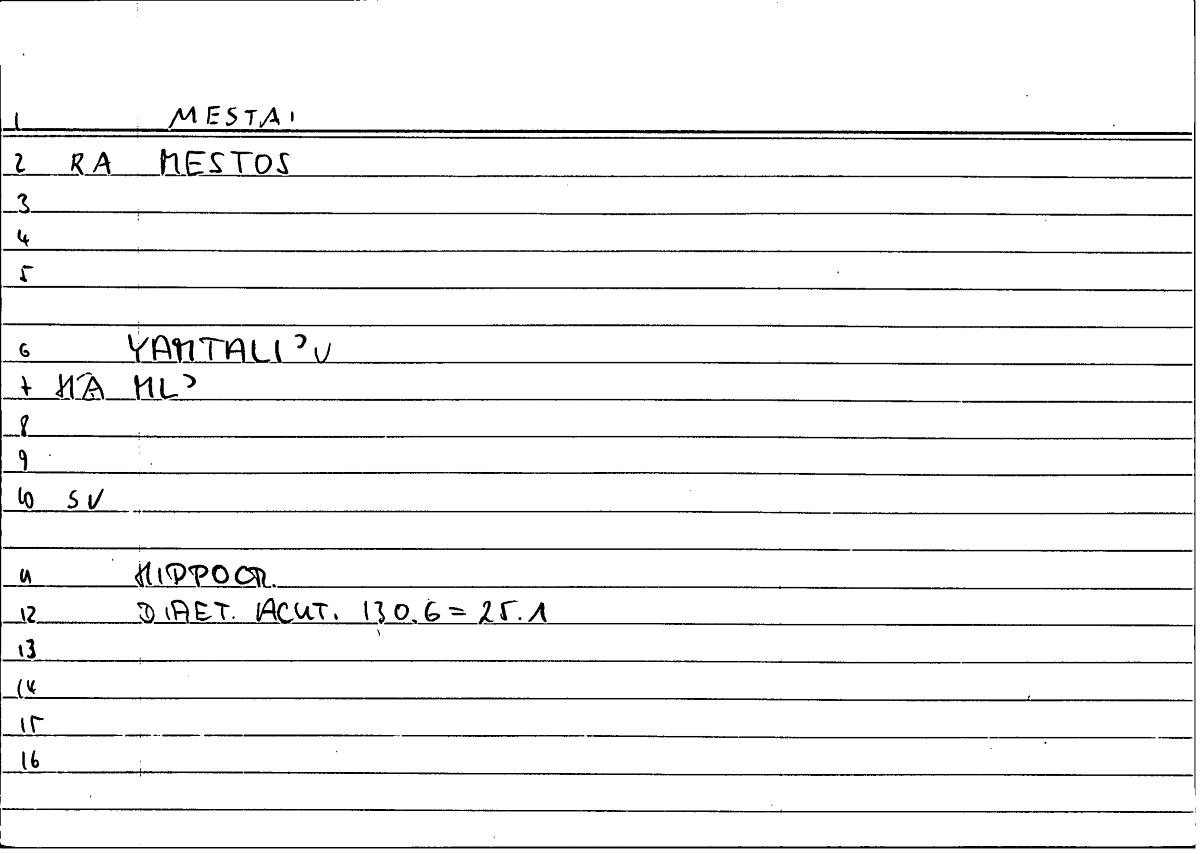 1 MESTAI
2 RA MESTOS
3
4
5
6 YAMTALI'U
7 HA ML'
8
9
10 SV
11 HIPPOCR.
12 DIAET. ACUT. 130.6 = 25.1
13
14
15
16